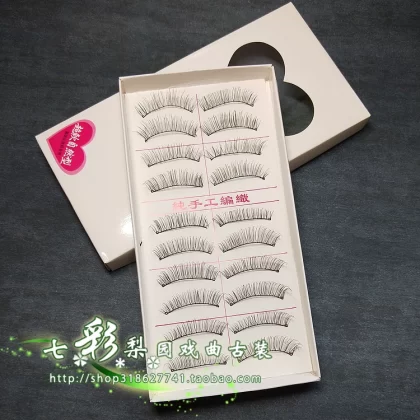 超激自然型
純手工編織
七彩梨园戏曲古装
http://shop318627741.taobao.com/